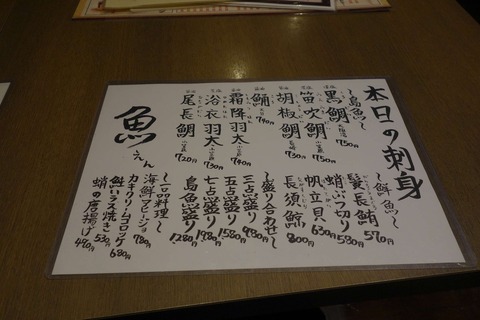 本日の刺身
〜島魚〜
黒鯛 750円
笛吹鯛 750円
胡椒鯛 730円
鯒 740円
霜降羽太 740円
浴衣羽太 730円
尾長鯛 720円
魚えん
〜鮮魚〜
鬢長鮪 570円
蛸ぶつ切り 580円
帆立貝 630円
長須鯨 800円
〜盛り合わせ〜
三点盛り 980円
五点盛り 1580円
七点盛り 1980円
島魚盛り 1280円
〜一品料理〜
海鮮アヒージョ 780円
カキクリームコロッケ 680円
鮭ハラス焼き 530円
蛸の唐揚げ 490円